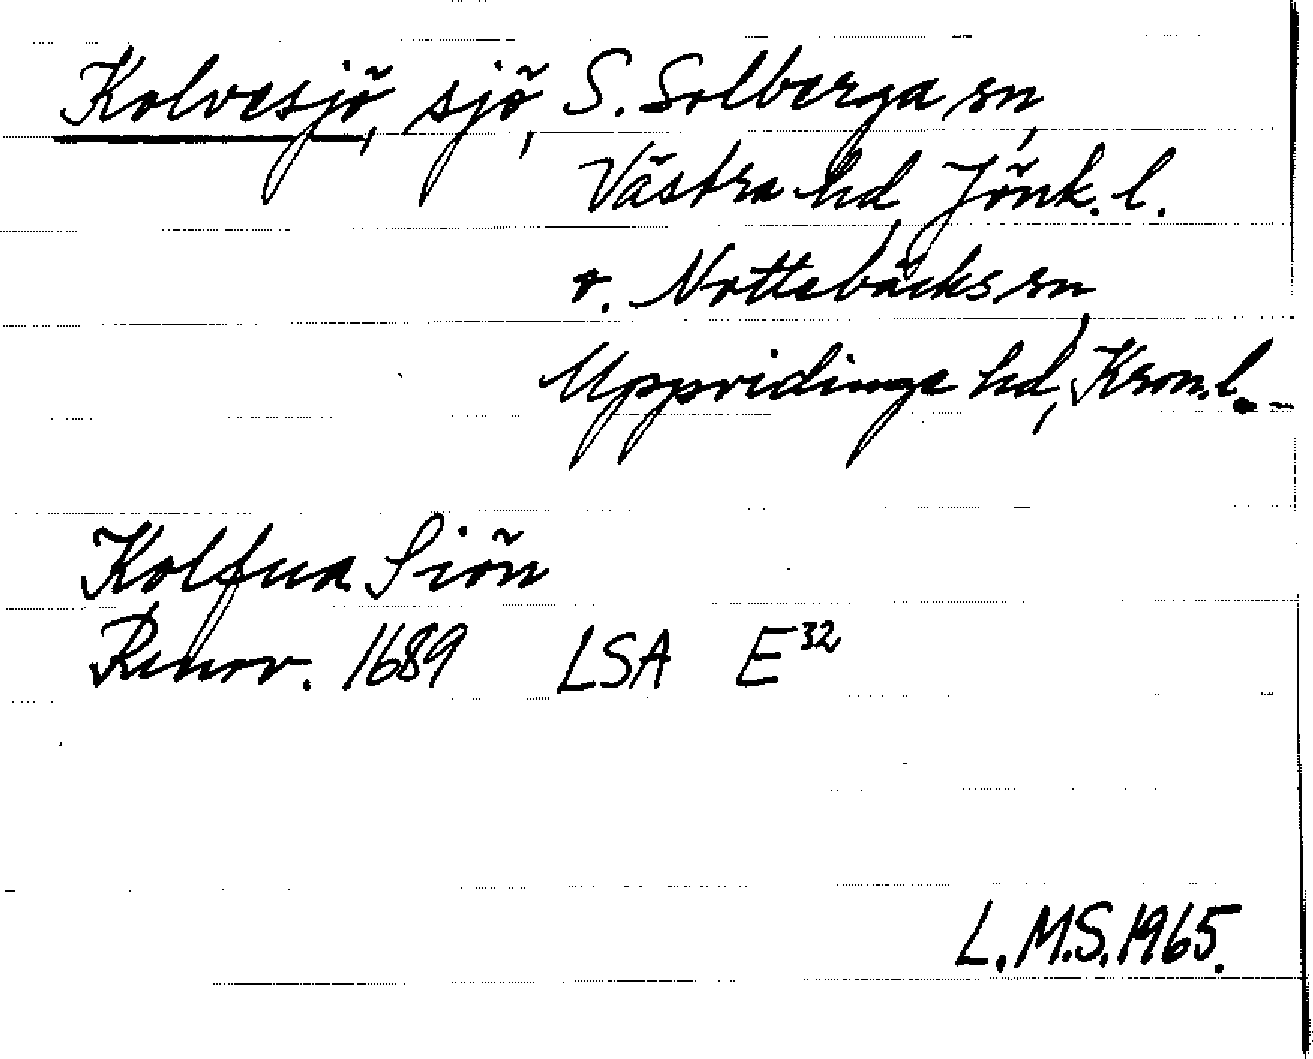 Kolvesjö, sjö, S. Solberga sn,
Västra hd, Jönk. l.
o. Nottebäcks sn
Uppvidinge hd, Kron. l.
Kolfua Siön
Renov. 1689 LSA E³²
L.M.S. 1965.